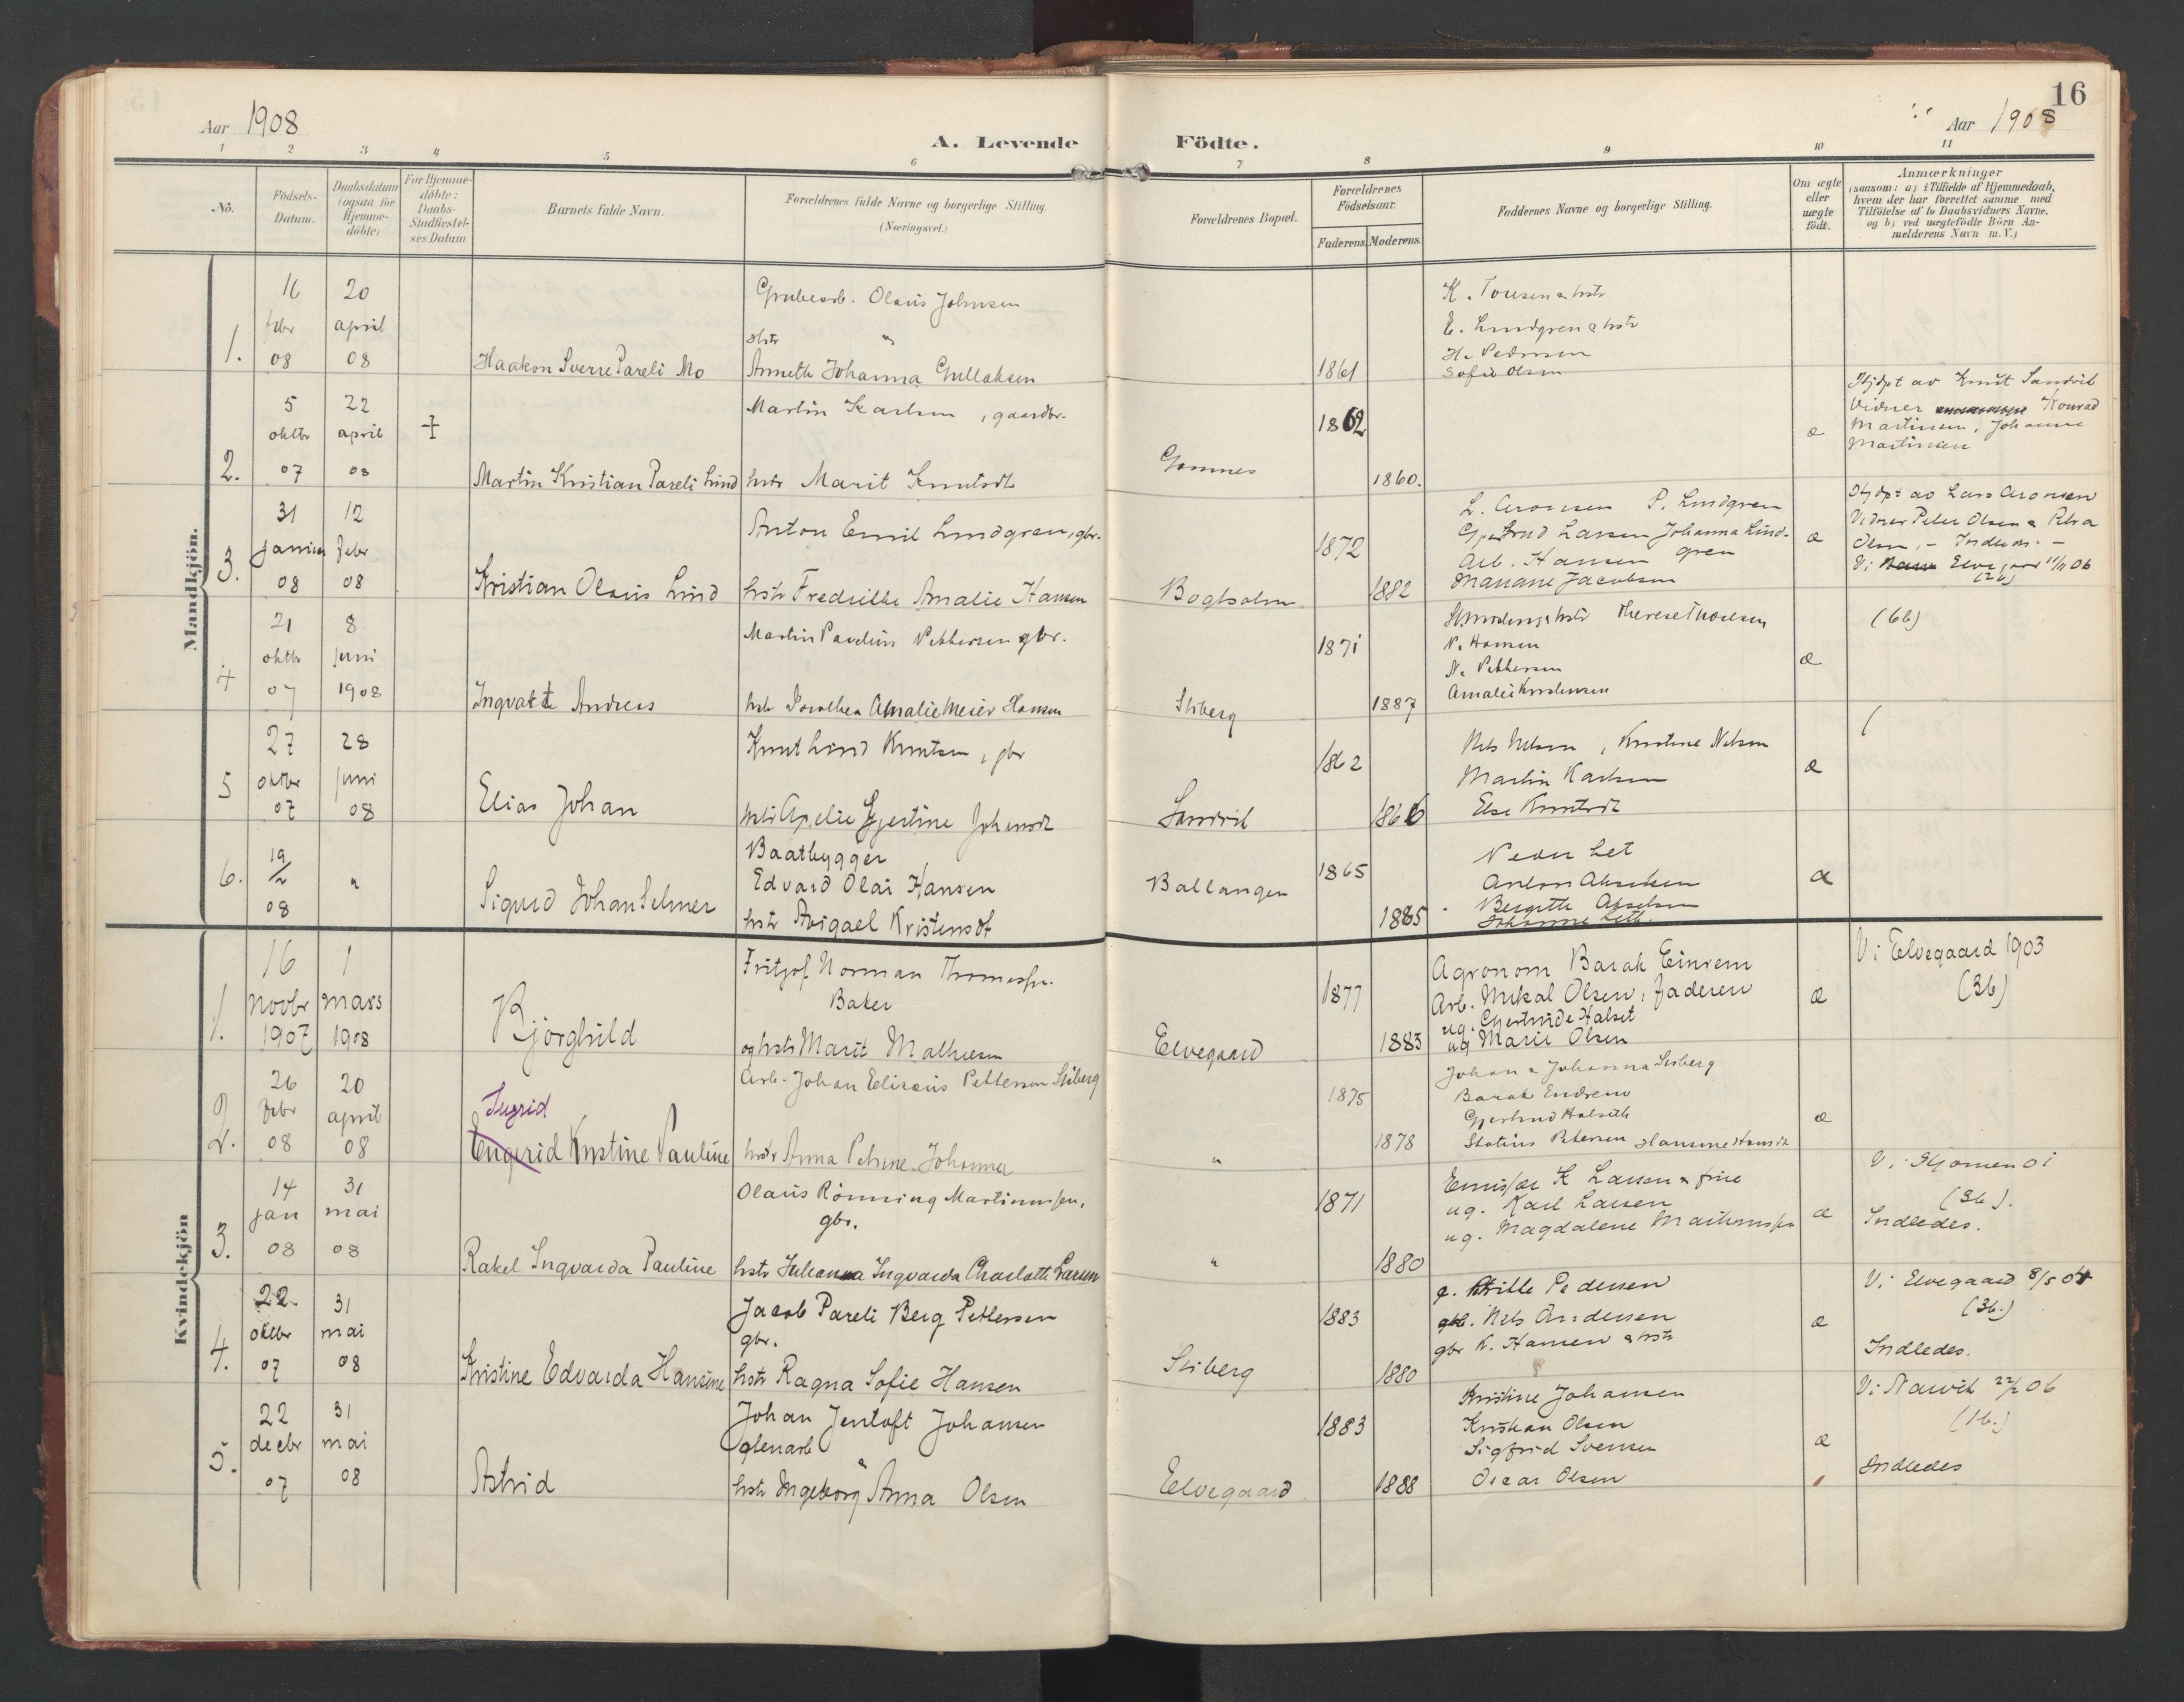 16
Aar 1908
Aar 1908
A. Levende Födte.
1 2 3 4 5 6 7 8 9 10 11
No.
Födsels-
Datum.
Daabsdatum
(ogsaa for
Hjemme-
döbte)
For Hjemme-
döbte:
Daabs-
Stadfæstel-
ses Datum
Barnets fulde Navn.
Forældrenes fulde Navne og borgerlige Stilling.
(Næringsvei.)
Forældrenes Bopæl.
Forældrenes
Födselsaar.
Faderens. Moderens.
Faddernes Navne og borgerlige Stilling.
Om ægte
eller
uægte
födt.
Anmærkninger
(saasom: a) i Tilfælde af Hjemmedaab,
hvem der har forrettet samme med
Tilföielse af to Daabsvidners Navne,
og b) ved uægtefödte Börn An-
melderens Navn m. V.)
Mandkjön.
1.
16
febr
08
20
april
08
Haakon Sverre Pareli Mo
Grubearb. Olaus Johnsen
hstr "
Anneth Johanna Gullaksen
1861
K. Tousen & hstr
E. Lundgren & hstr
H. Pedersen
Sofie Olsen
2.
5
oktbr
07
22
april
08
+
Martin Kristian Pareli Lind
Martin Karlsen, gaardbr.
hstr Marit Knutsdt
Gamnes
1862
1860.
æ
Hjdpt av Knut Sandvik
Vidner Konrad
Martinsen, Johanne
Martinsen
3.
31
januar
08
12
febr
08
Kristian Olaus Lind
Anton Emil Lundgren, gbr.
hstr Fredrikke Amalie Hansen
Bogholm
1872
1882
L. Aronsen P. Lundgren
Gjertrud Larsen Johanna Lind-
gren
Arb. Hansen
Mariane Jacobsen
æ
Hjdpt av Lars Aronsen
Vidner Peter Olsen & Petra
Olsen. - Indledes. -
Vi Elvegaard 11/11 06
(2b)
4
21
oktbr
07
8
juni
1908
Ingvald Andreas
Martin Paulius Pettersen gbr.
hstr Dorothea Amalie Meier Hansen
Skiberg
1871
1887
N. Hansen
N. Pettersen
Amalie Kristensen
æ
(6b)
5
27
oktbr
07
28
juni
08
Elias Johan
Knut Lind Knutsen, gbr
hstr Apelie Gjertine Johansdt
Sandvik
1862
1866
Nils Nilsen, Kristine Nilsen
Martin Karlsen
Else Knutsdt
æ
6.
19
/2
08
"
Sigurd Johan Selmer
Baatbygger
Edvard Olai Hansen
hstr Avigael Kristensdt
Ballangen
1865
1885
Peder Let
Anton Akselsen
Bergitte Akselsen
Johanne Leth.
æ
Kvindekjön
1.
16
Novbr
1907
1
mars
1908
Bjorghild
Fritjof Norman Thomassen.
Baker
og hstr Marit Mathisen
Elvegaard
1877
1883
Agronom Barak Einrem
Arb. Mikal Olsen, faderen
ug. Gjertrude Halset
ug Marie Olsen
æ
Vi Elvegaard 1903
(3b)
2.
26
febr
08
20
april
08
Ingrid
Engerid Kristine Pauline
Arb. Johan Eliseus Pettersen Skiberg
hstr Anna Petrine Johanna
"
1875
1878
Johan & Johanna Skiberg
Barak Endrem
Gjertrud Halseth
Statius Petersen Hansine Hansdt
æ
3.
14
jan
08
31
mai
08
Rakel Ingvarda Pauline
Olaus Rönning Martinussen,
gbr.
hstr Juleanna Ingvarda Charlotte Larsen
"
1871
1880
Emissær K Larsen & frue
ug. Karl Larsen
ug. Magdalene Martinussen
æ
Vi Skjomen 01
(3b).
Indledes.
4.
22
oktbr
07
31
mai
08
Kristine Edvarda Hansine
Jacob Pareli Berg Pettersen
gbr.
hstr Ragna Sofie Hansen
Skiberg
1883
1880
g. Mille Pedersen
gbr. Nils Andersen
gbr K. Hansen & hstr
æ
Vi Elvegaard 8/5 04
(3b.)
Indledes.
5.
22
decbr
07
31
mai
08
Astrid
Johan Jentoft Johansen
glenarb
hstr Ingeborg Anna Olsen
Elvegaard
1883
1888
Kristine Johansen
Kristian Olsen
Sigfrid Svensen
Oscar Olsen
æ
Vi Narvik 22/2 06
(1b.)
Indledes